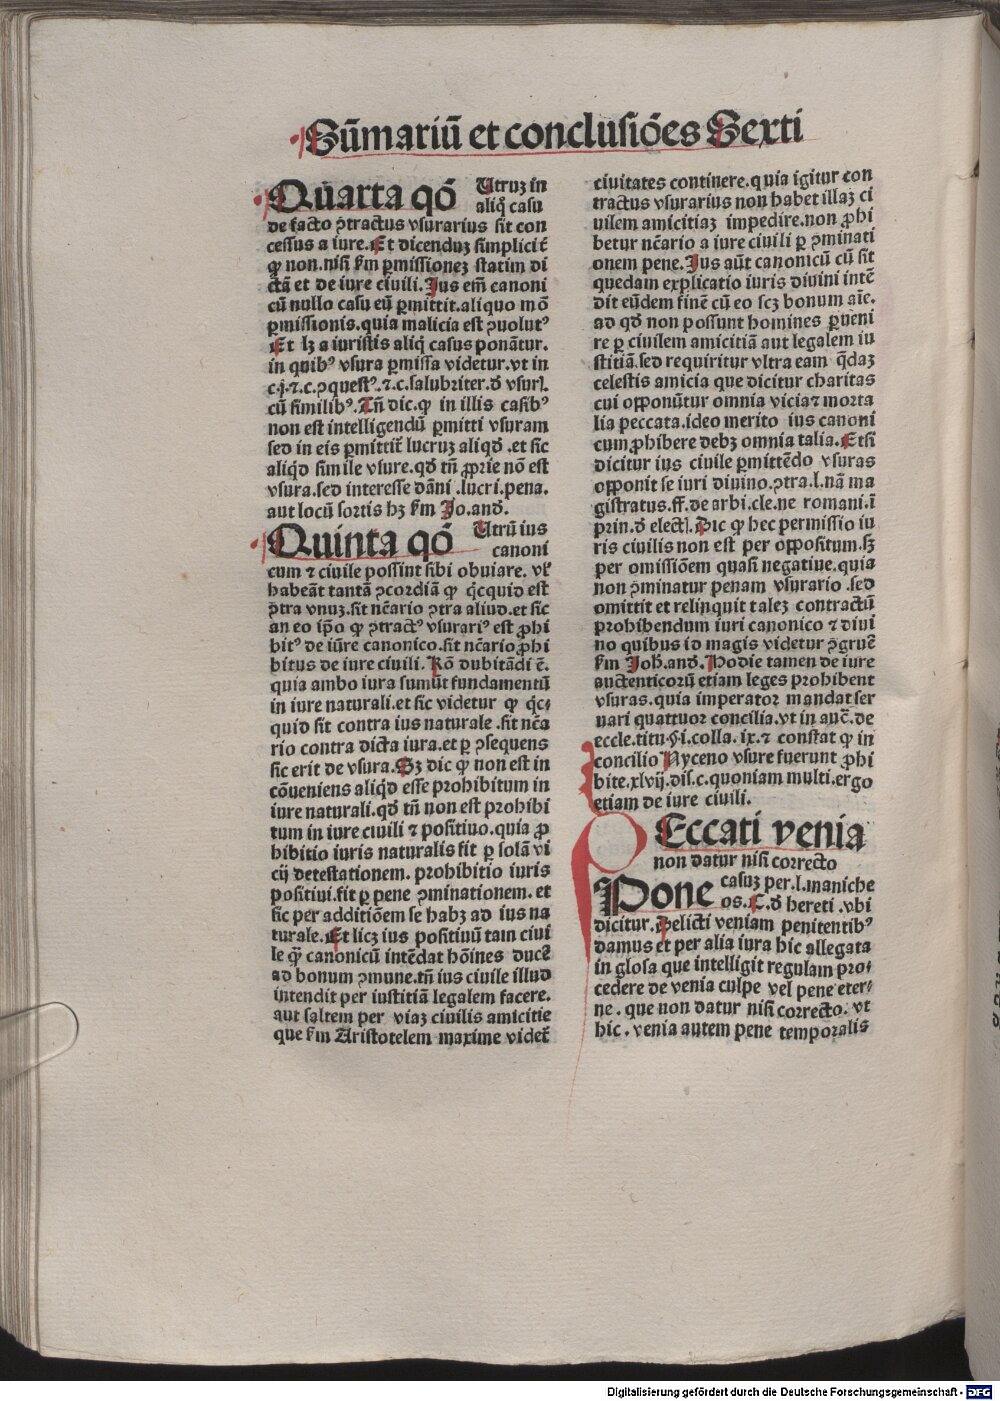 Sūmariū et conclusiões Sexti
Quarta qō Utruꝫ in
aliq̄ casu
de facto ꝯtractus vsurarius sit con
cessus a iure. Et dicenduꝫ simplicit̄
ꝙ non. nisi ẜm ꝑmissioneꝫ statim di
ctā et de iure ciuili. Jus em̄ canoni
cū nullo casu eū ꝑmittit. aliquo mō
ꝑmissionis. quia malicia est ꝯuolutꝰ
Et lꝫ a iuristis aliq̄ casus ponātur.
in quibꝰ vsura ꝑmissa videtur. vt in
c.j. ⁊.c. ꝯquestꝰ. ⁊.c. salubriter. d̄ vsurꝭ.
cū similibꝰ. Tn̄ dic. ꝙ in illis casibꝰ
non est intelligendū ꝑmitti vsuram
sed in eis ꝑmittit̄ lucruꝫ aliqd̄. et sic
aliqd̄ simile vsure. qd̄ tn̄ ꝓprie nō est
vsura. sed interesse dāni. lucri. pena.
aut locū sortis hꝫ ẜm Jo. and̄.
Quinta qō Utrū ius
canoni
cum ⁊ ciuile possint sibi obuiare. vl̄
habeāt tantā ꝯcordiā ꝙ qͥcquid est
ꝯtra vnuꝫ. sit nc̄ario ꝯtra aliud. et sic
an eo ip̄o ꝙ ꝯtractꝰ vsurariꝰ est ꝓhi
bitꝰ de iure canonico. sit nc̄ario ꝓhi
bitus de iure ciuili. Rō dubitādi ē.
quia ambo iura sumūt fundamentū
in iure naturali. et sic videtur ꝙ qͥc
quid sit contra ius naturale. sit nc̄a
rio contra dicta iura. et ꝑ ꝯsequens
sic erit de vsura. Sꝫ dic ꝙ non est in
cōueniens aliqd̄ esse prohibitum in
iure naturali. qd̄ tn̄ non est prohibi
tum in iure ciuili ⁊ positiuo. quia ꝓ
hibitio iuris naturalis fit ꝑ solā vi
cij detestationem. prohibitio iuris
positiui. fit ꝑ pene ꝯminationem. et
sic per additiōem se habꝫ ad ius na
turale. Et licꝫ ius positiuū tam ciui
le qͣꝫ canonicū intēdat hōines ducē
ad bonum ꝯmune. tn̄ ius ciuile illud
intendit per iustitiā legalem facere.
aut saltem per viaꝫ ciuilis amicitie
que ẜm Aristotelem maxime videt̄
ciuitates continere. quia igitur con
tractus vsurarius non habet illaꝫ ci
uilem amicitiaꝫ impedire. non ꝓhi
betur nc̄ario a iure ciuili ꝑ ꝯminati
onem pene. Jus aūt canonicū cū sit
quedam explicatio iuris diuini intē
dit eūdem finē cū eo scꝫ bonum aīe.
ad qd̄ non possunt homines ꝑueni
re ꝑ ciuilem amicitiā aut legalem iu
stitiā. sed requiritur vltra eam qͣdaꝫ
celestis amicia que dicitur charitas
cui opponūtur omnia vicia ⁊ morta
lia peccata. ideo merito ius canoni
cum ꝓhibere debꝫ omnia talia. Etsi
dicitur ius ciuile ꝑmittēdo vsuras
opponit se iuri diuino. ꝯtra. l. nā ma
gistratus. ff. de arbi. cle. ne romani. ī
prin. d̄ electꝭ. Dic ꝙ hec permissio iu
ris ciuilis non est per oppositum. sꝫ
per omissiōem quasi negatiue. quia
non ꝯminatur penam vsurario. sed
omittit et relinquit taleꝫ contractū
prohibendum iuri canonico ⁊ diui
no quibus id magis videtur ꝯgruē
ẜm Joh̄. and̄. Hodie tamen de iure
auctenticorū etiam leges prohibent
vsuras. quia imperator mandat ser
uari quattuor concilia. vt in auc̄. de
eccle. titu. §.i. colla. ix. ⁊ constat ꝙ in
concilio Nyceno vsure fuerunt ꝓhi
bite. xlvij. dis. c. quoniam multi. ergo
etiam de iure ciuili.
PEccati venia
non datur nisi correcto
Pone casuꝫ per. l. maniche
os. C. d̄ hereti. vbi
dicitur. Delicti veniam penitentibꝰ
damus et per alia iura hic allegata
in glosa que intelligit regulam pro
cedere de venia culpe vel pene eter
ne. que non datur nisi correcto. vt
hic. venia autem pene temporalis
Digitalisierung gefördert durch die Deutsche Forschungsgemeinschaft - DFG